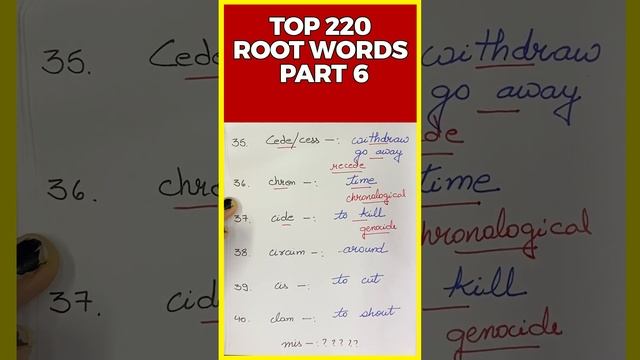 TOP 220
ROOT WORDS
PART 6
35. Cede/cess -: withdraw
go away
recede
36. chron -: time
chronological
37. cide -: to kill
genocide
38. circum -: around
39. cis -: to cut
40. clam -: to shout
mis -: ? ? ? ? ?
35. Ced
withdraw
go away
de
36. chro
time
hronological
37. cid
kill
genocide